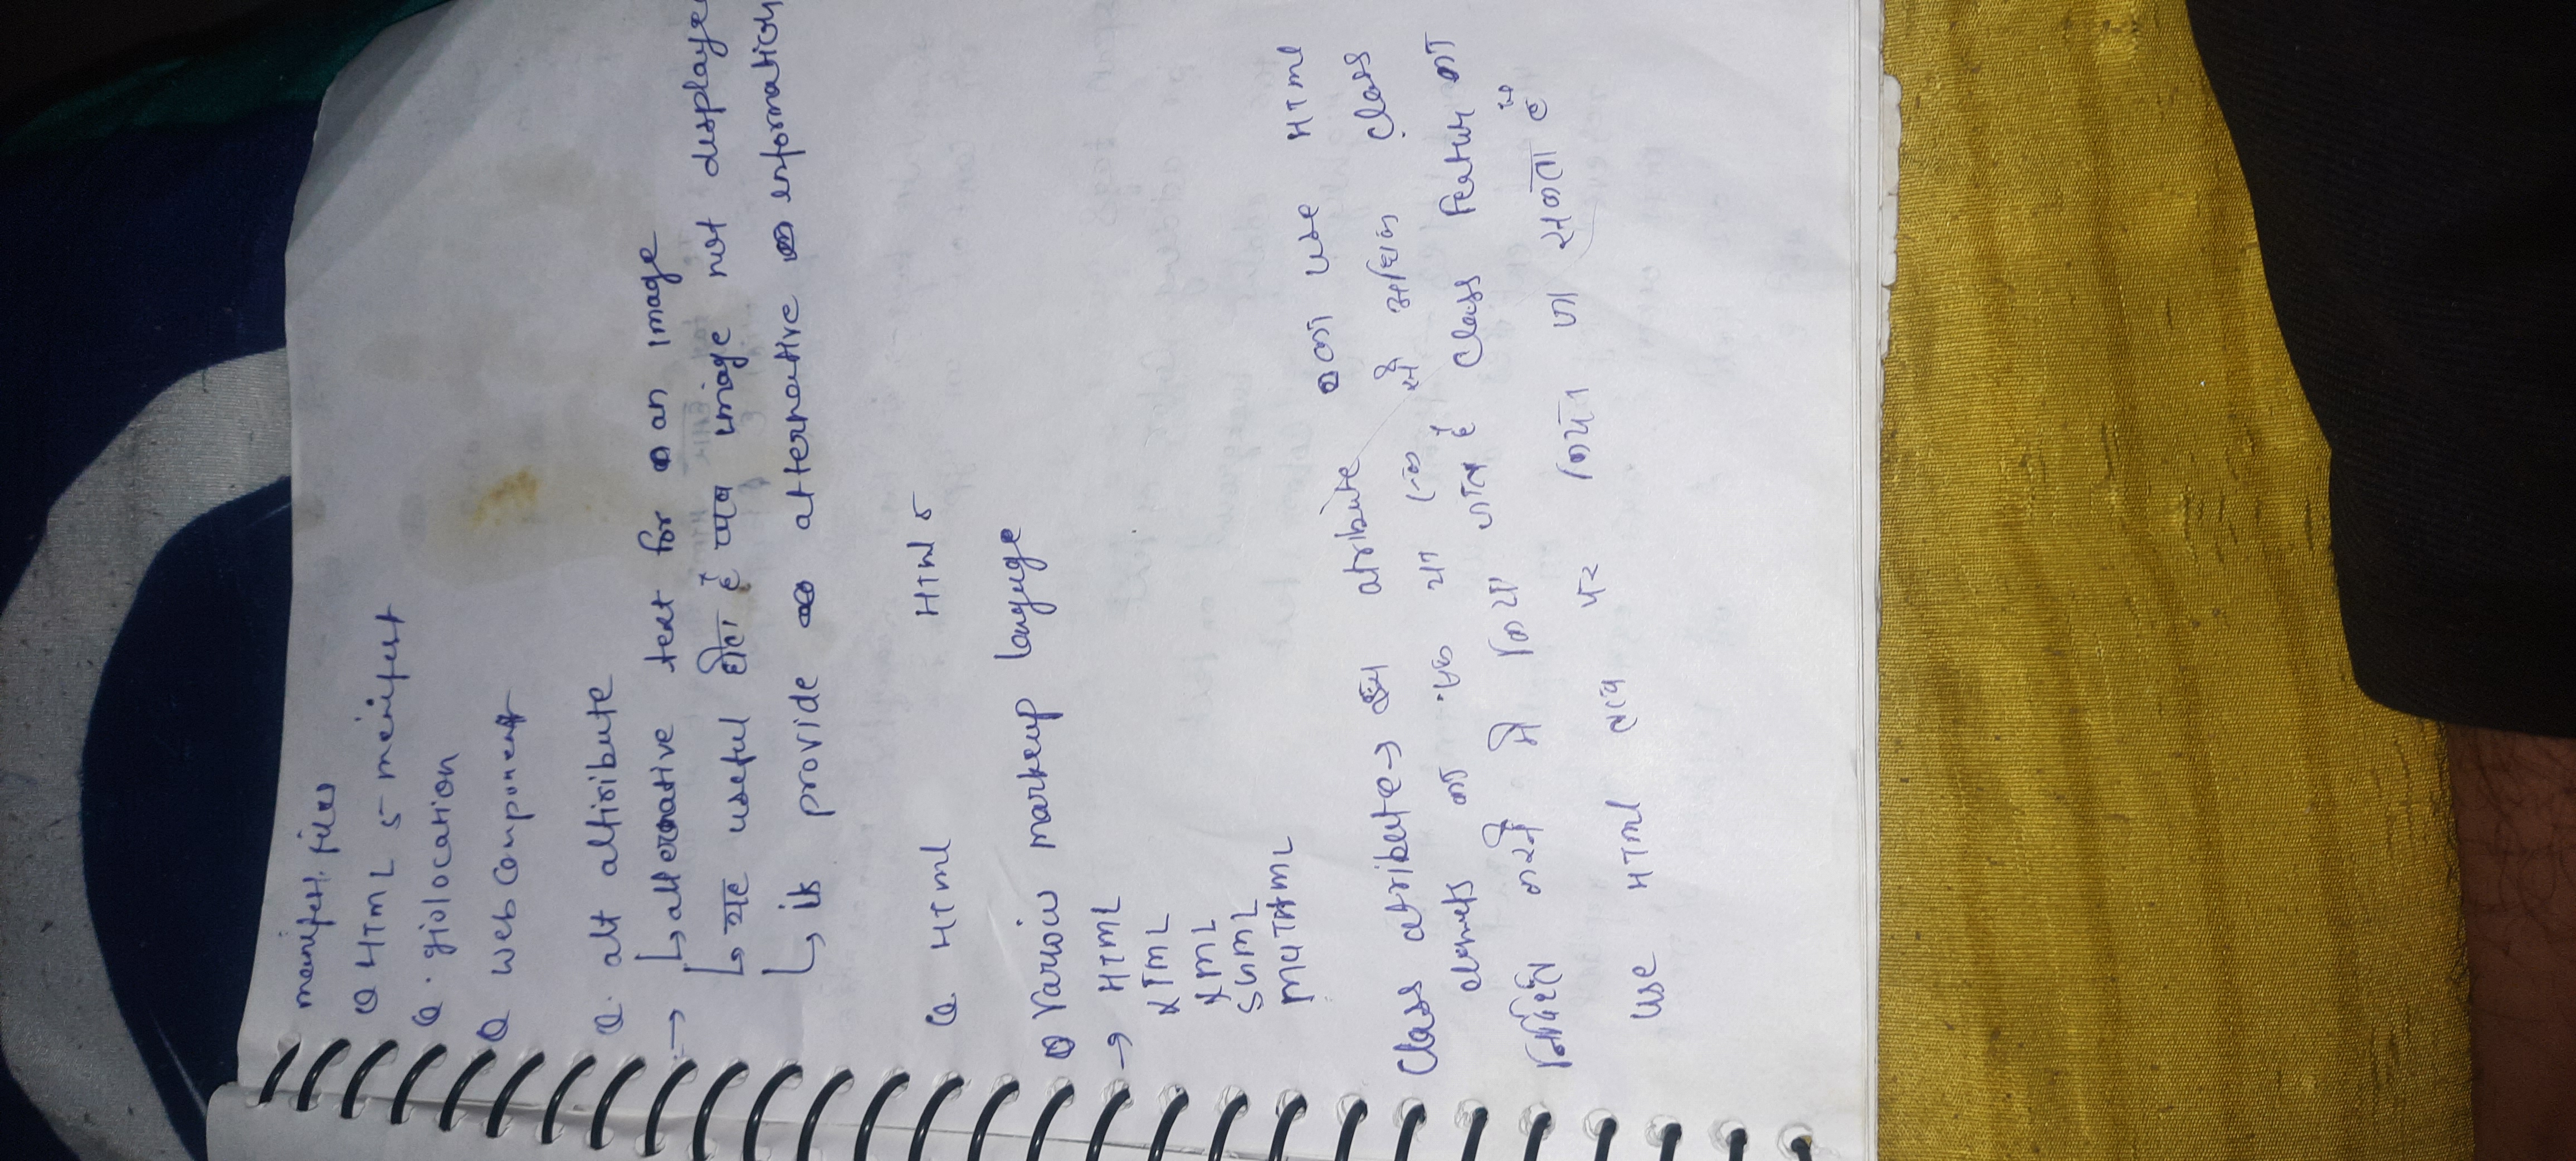 manifest files
Q HTML 5 menifest
Q. giolocation
Q web Component
Q. alt altiribute
→ ↳ alternative text for an image
↳ यह useful होता है जब image not displaye
↳ is provide alternative information
Q. HTml HTml 5
Q Variois markeup languge
→ HTML
XTML
XML
SGML
MATHML
Class atribute→ इस atribute का use HTml
elements का एक या एक से अधिक class
निर्दिष्ट करने मे किया जाता है class feature का
use HTml तत्व पर किया जा सकता है